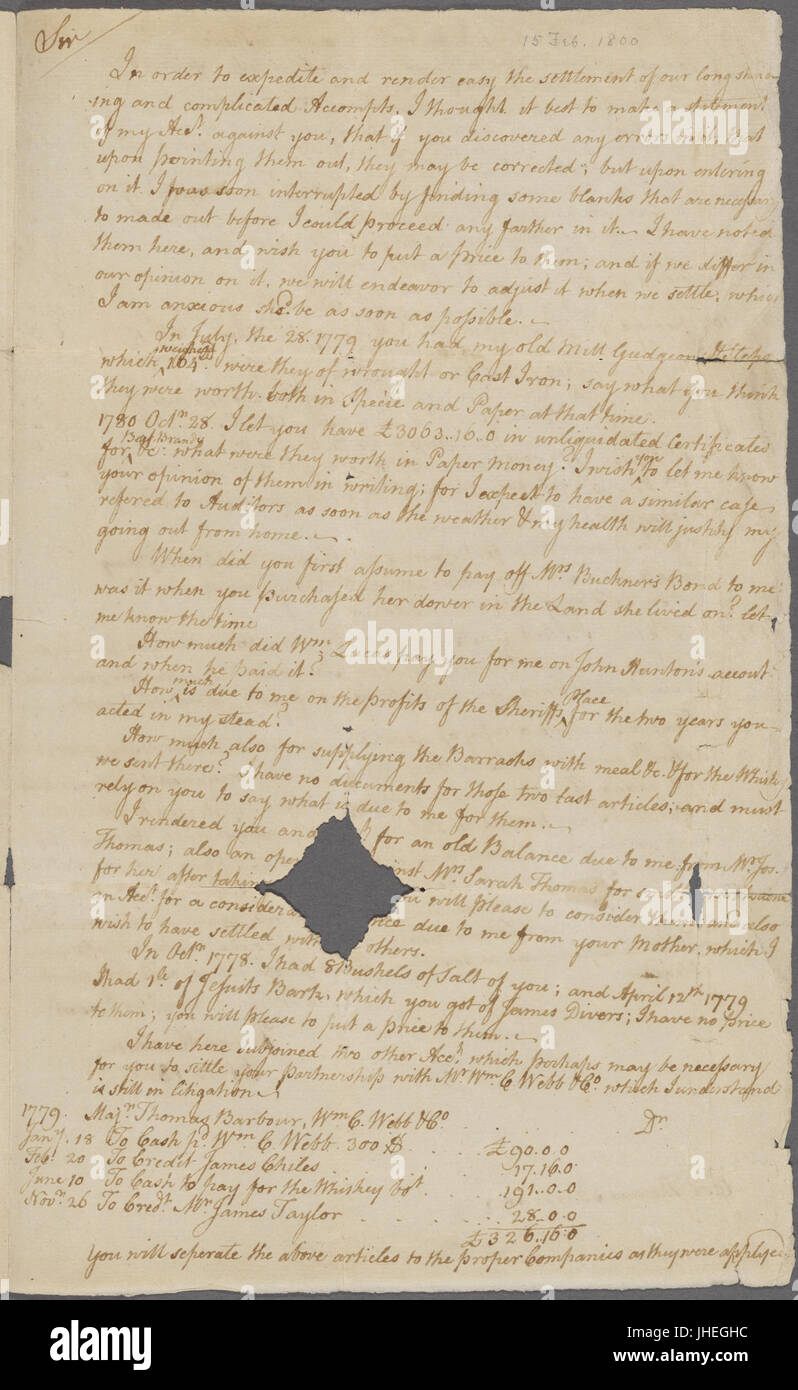 Sir
15 Feb. 1800
In order to expedite and render easy the settlement of our long stand-
ing and complicated Accompts, I thought it best to make a statement
of my Acct. against you, that if you discovered any errors
upon pointing them out, they may be corrected; but upon entering
on it I was soon interrupted by finding some blanks that are necessary
to made out before I could proceed any farther in it. I have noted
them here, and wish you to put a price to them; and if we differ in
our opinion on it, we will endeavor to adjust it when we settle, which
I am anxious shd. be as soon as possible.
In July, the 28. 1779 you had my old Mill Gudgeons & Steps
which weighed 104 were they of wrought or Cast Iron; say what you think
they were worth both in Specie and Paper at that time.
1780 Octr. 28. I let you have £3063..16..0 in unliquidated Certificates
for Beef. Brandy &c. what were they worth in Paper money? I wish you to let me know
your opinion of them in writing; for I expect to have a similar case
refered to Auditors as soon as the weather & my health will justify my
going out from home.
When did you first assume to pay off Mrs. Buckner's Bond to me
was it when you purchased her dower in the Land she lived on? let
me know the time
How much did Wm. Lucas pay you for me on John Hunton's accout
and when he paid it?
How much is due to me on the profits of the Sheriffs Place for the two years you
acted in my stead?
How much also for supplying the Barracks with meal &c. & for the Whisky
we sent there? I have no documents for those two last articles; and must
rely on you to say what is due to me for them.
I rendered you an for an old Balance due to me from Mr. Jos.
Thomas; also an ope inst Mrs. Sarah Thomas for
for her after takin
on Acct. for a considera nce due to me from your Mother, which I
wish to have settled with others.
In Octr. 1778. I had 8 Bushels of Salt of you; and April 12th 1779
I had 1 lb of Jesuits Bark, which you got of James Divers; I have no price
to them; you will please to put a price to them.
I have here subjoined two other Accts. which perhaps may be necessary
for you to settle your partnership with Mr. Wm. C. Webb & Co. which I understand
is still in litigation
1779. Majr. Thomas Barbour, Wm. C. Webb & Co. Dr.
Jany. 18 To Cash pd. Wm. C. Webb 300 £90.0.0
Feb. 20 To Credit James Chiles 17.16.0
June 10 To Cash to pay for the Whiskey bot. 191..0..0
Novr. 26 To Credt. Mr. James Taylor 28..0.0
£326..16.0
You will seperate the above articles to the proper Companies as they were applyed
alamy
a
Image ID: JHEGHC
www.alamy.com